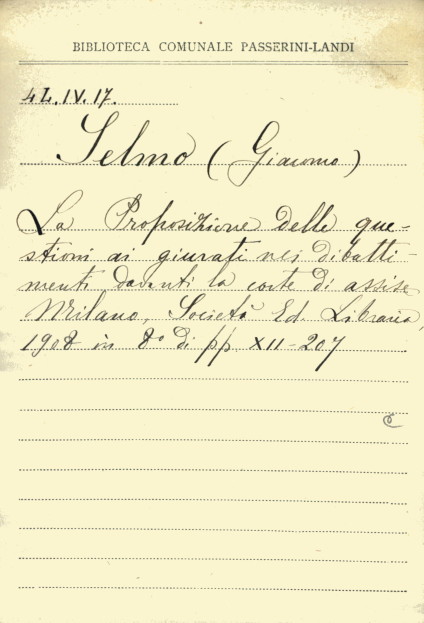 BIBLIOTECA COMUNALE PASSERINI-LANDI
4L.IV.17.
Selmo (Giacomo)
La Proposizione delle que-
stioni ai giurati nei dibatti-
menti davanti la corte di assise
Milano, Società Ed. Libraria,
1908 in 8° di pp XII-207